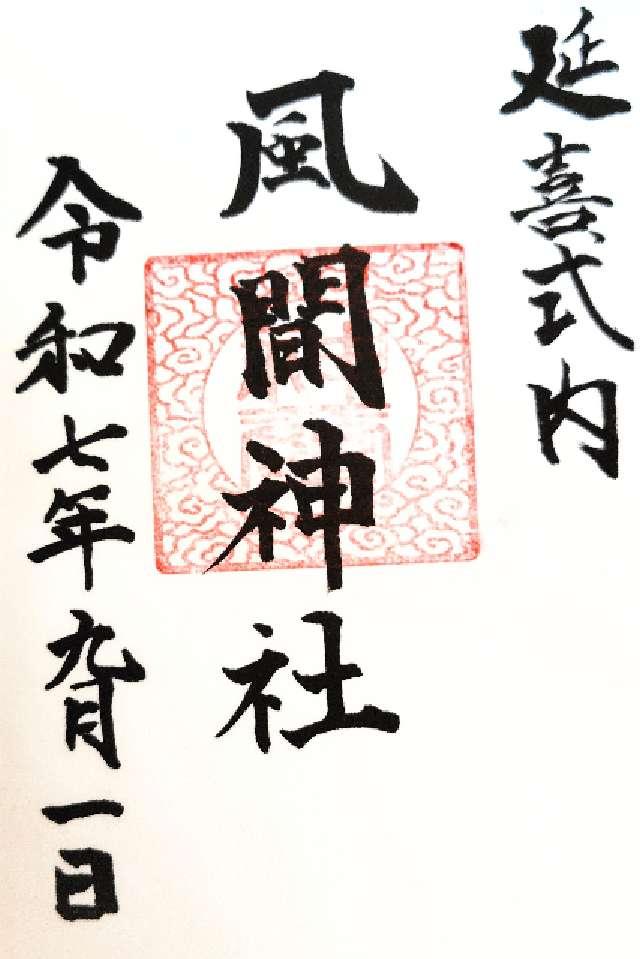 延喜式内
風間神社
令和七年九月一日